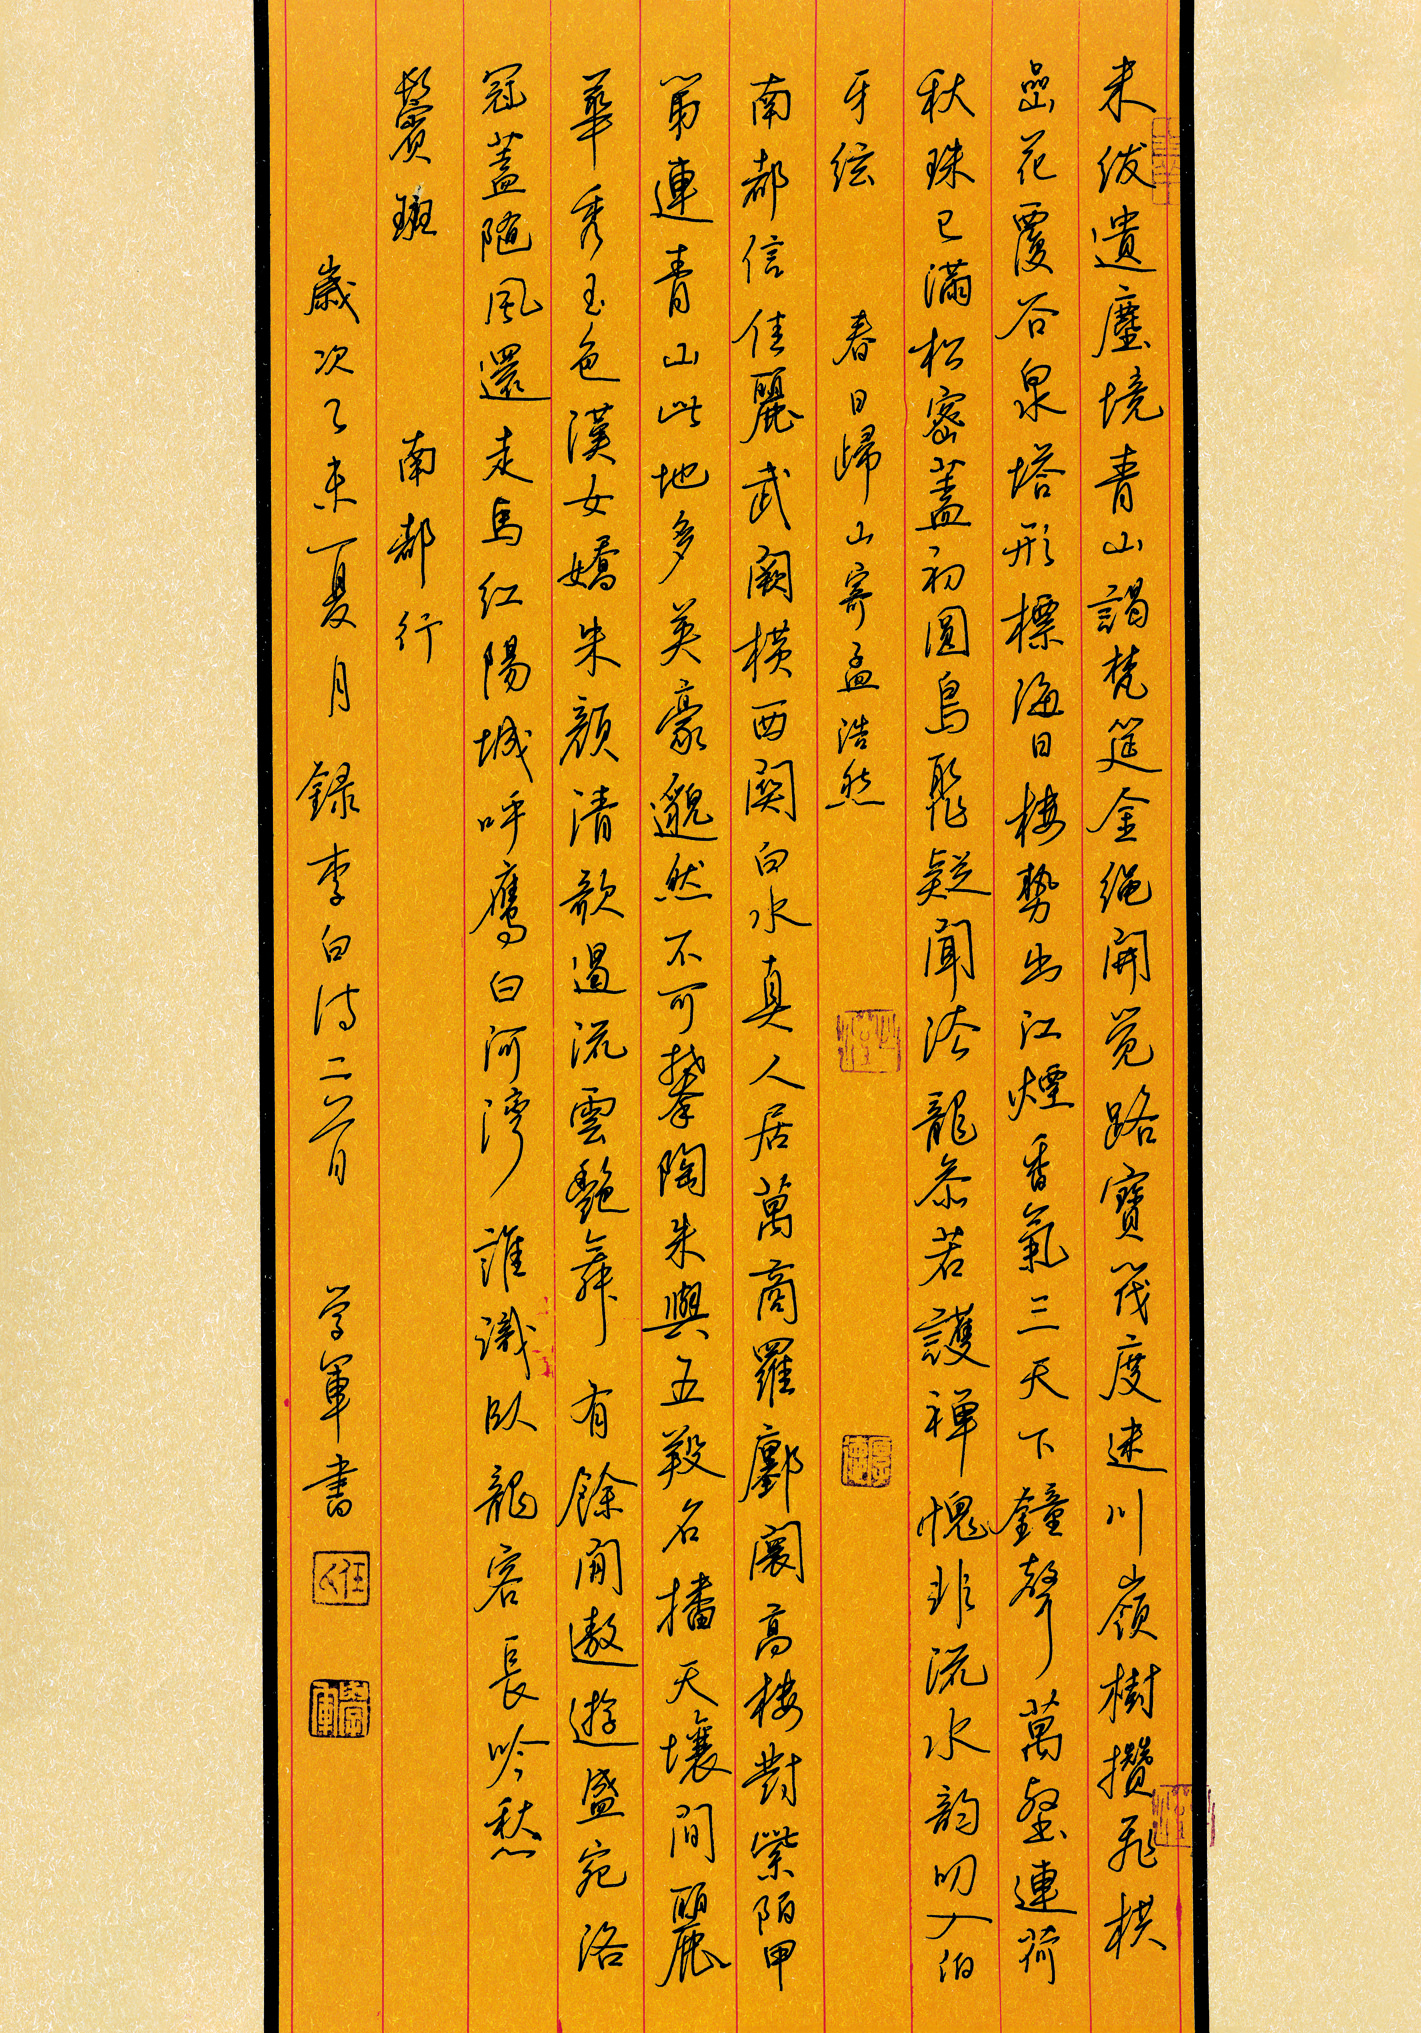 朱紱遺塵境青山謁梵筵金繩開覺路寶筏度迷川嶺樹攢飛栱
嵒花覆谷泉塔形標海日樓勢出江煙香氣三天下鐘聲萬壑連荷
秋珠已滿松密蓋初圓鳥聚疑聞法龍參若護禪愧非流水韵叨入伯
牙絃 春日歸山寄孟浩然
南都信佳麗武闕橫西関白水真人居萬商羅鄽闤高樓對紫陌甲
第連青山此地多英豪邈然不可攀陶朱與五羖名播天壤間麗
華秀玉色漢女嬌朱顏清歌遏流雲艷舞有餘閒遨遊盛宛洛
冠蓋隨風還走馬紅陽城呼鷹白河灣誰識臥龍客長吟愁
鬢斑 南都行
歲次乙未夏月 錄李白诗二首 学軍書